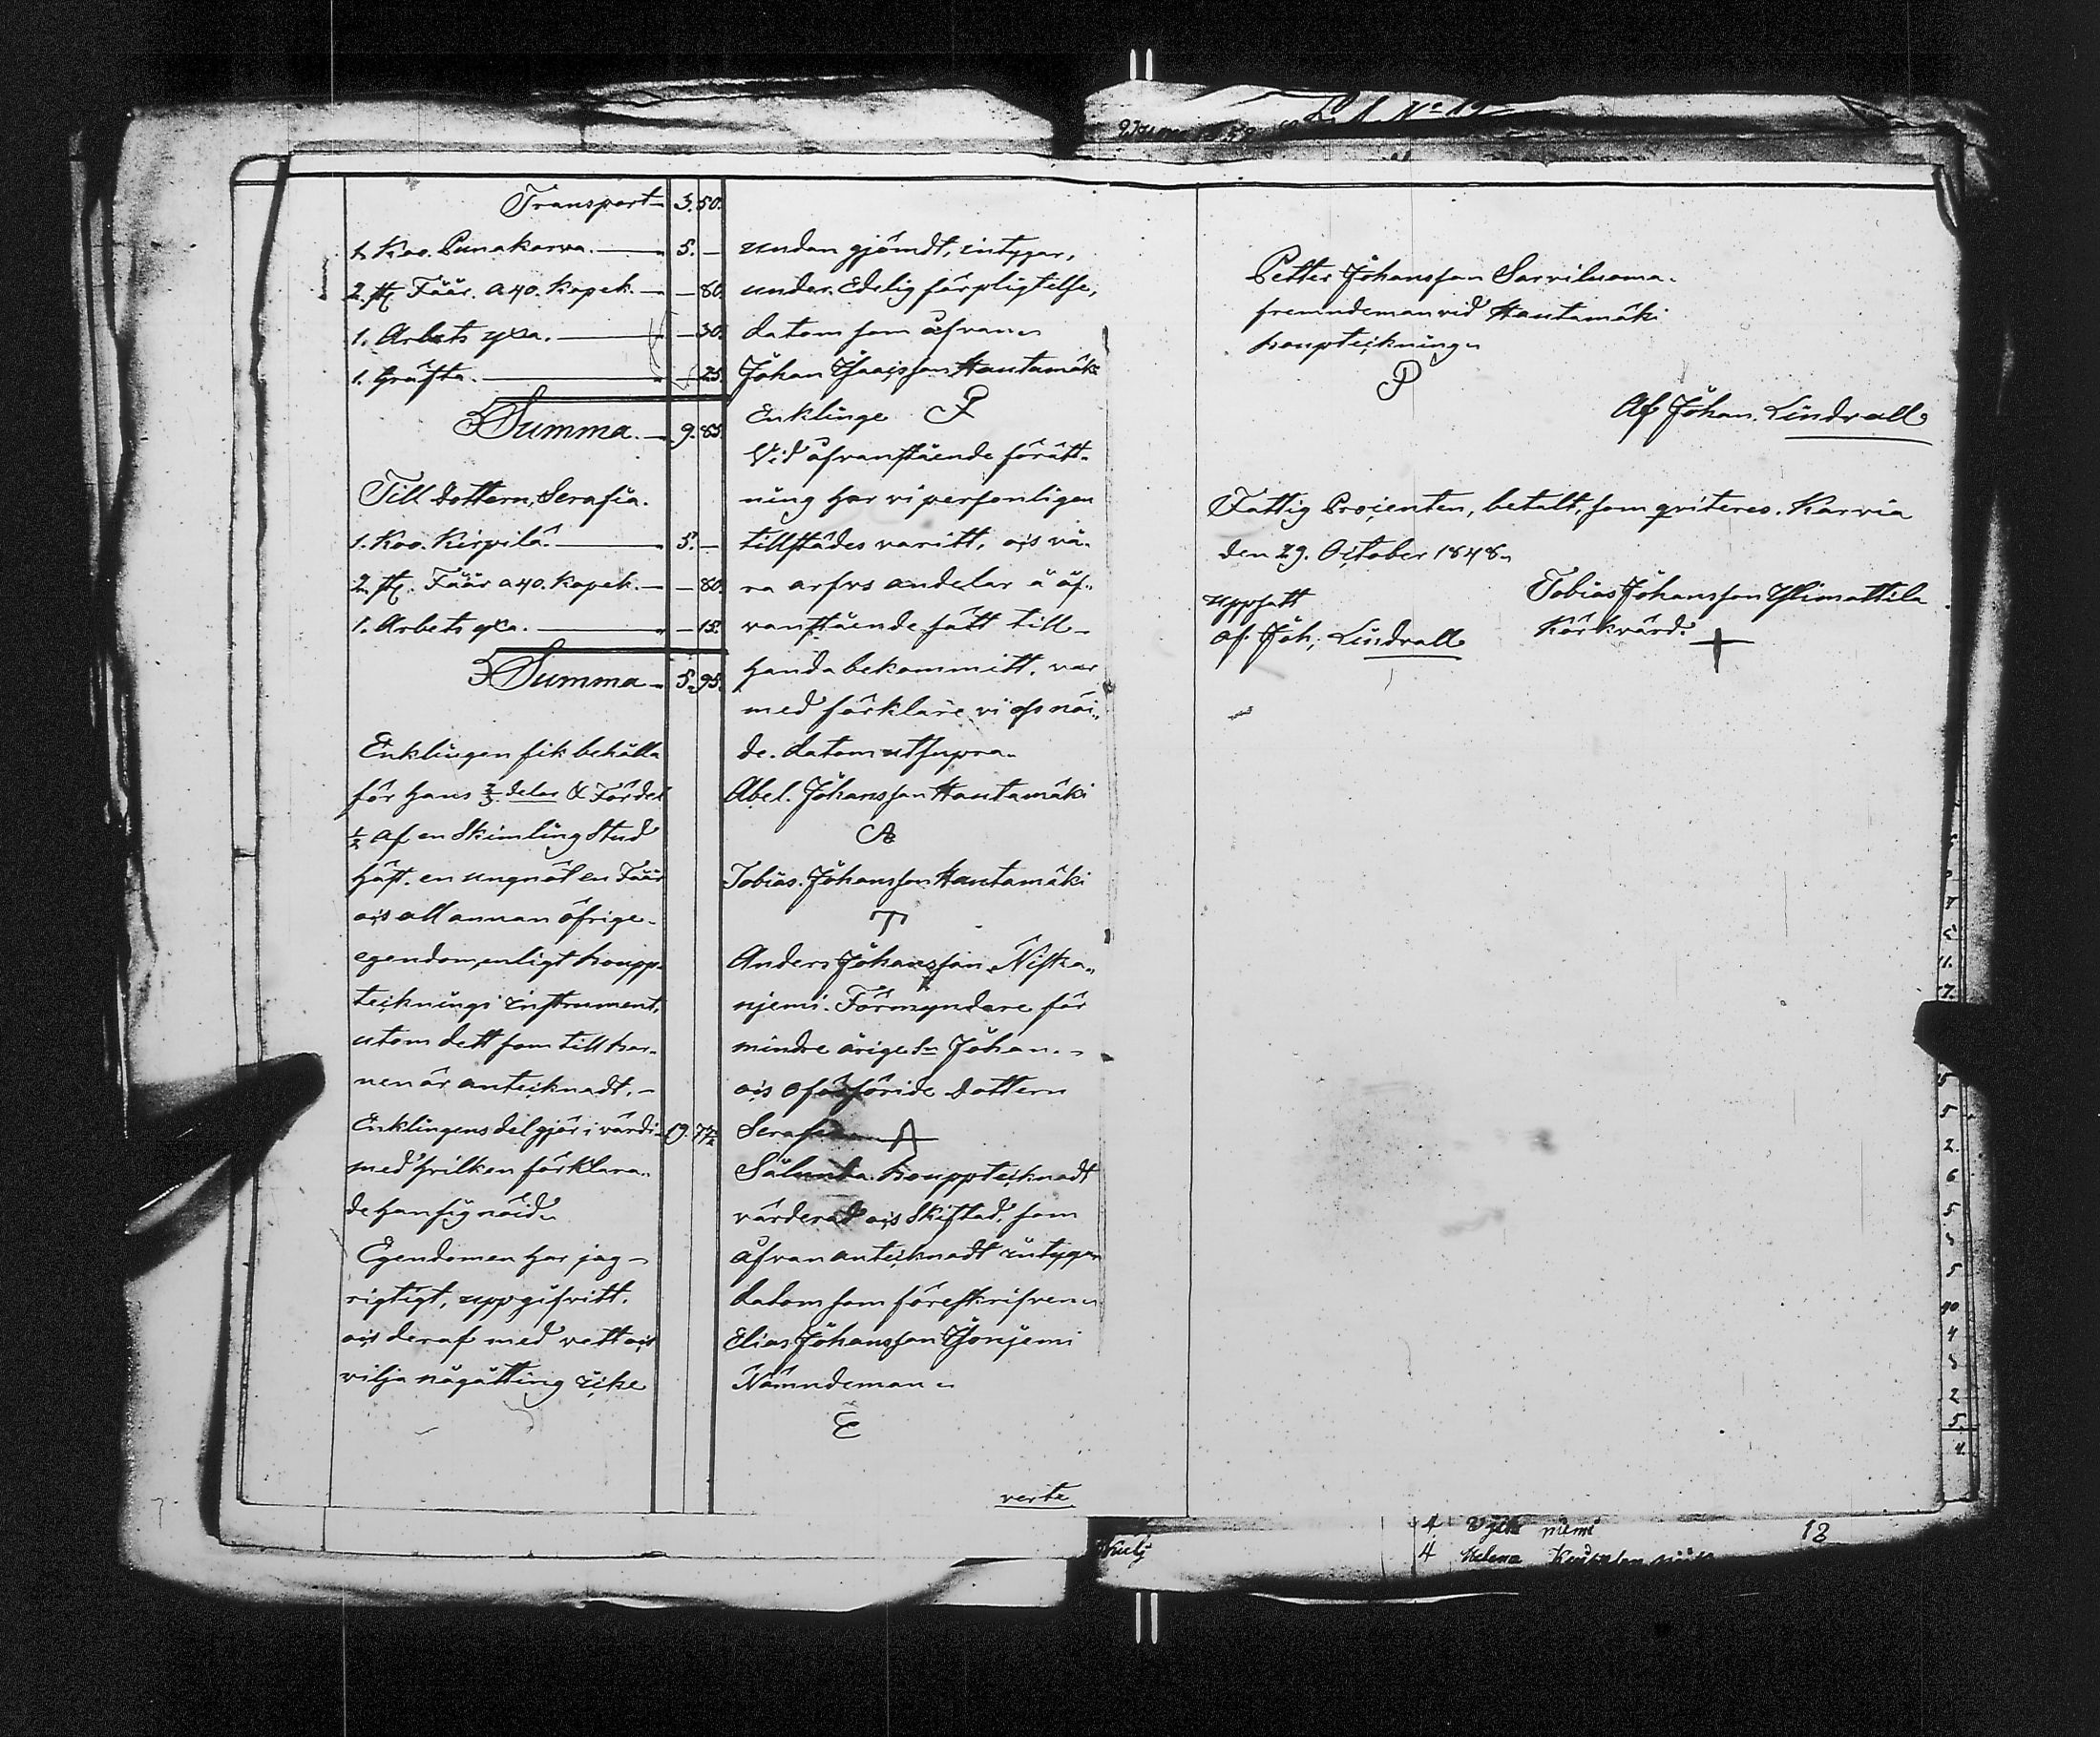 Transport 3.50.
1. Koo. Punakorva. 5. –
2. st. Fåår. a 40. Kopek. – 80.
1. Arbets yxa. – 30.
1. Gräfta. – 25.
Summa. 9.85.
Till Dottern, Serafia.
1. Koo. Kirpilä. 5. –
2. st. Fåår a 40. Kopek. – 80.
1. Arbets yxa. – 15.
Summa 5.95.
Enklingen fik behålla
för hans 2/3 delar & Fördel
1/2 af en Skimling Stud
häst. en ungnöt en Fåår
ocs all annan öfrige
egendom, enligt boupp-
teckningsinstrument,
utom dett som till bar-
nen är antecknadt. –
Enklingens del gjör i värdi 19.
med hvilken förklara-
de han sig nöid.
Egendomen har jag
rigtigt, uppgifvitt.
ocs deraf med vett ocs
vilja någåtting icke
undan gjömdt, intygar,
under. Edelig förpligtelse,
datom som åfvan.
Johan Isacsson Hautamäki
Enklinge P
Vid åfvanstående förätt-
ning har vi personligen
tillstädes varitt, ocs vå-
ra arfvs andelar ä åf-
vanstående sätt till-
handa bekommitt. var
med förklare vi oss nöi-
de. datom utsupra.
Abel. Johansson Hautamäki
A
Tobias. Johansson Hautamäki
T
Anders Johansson Niska-
njemi. Förmyndare för
mindre årige Sn Johan. –
ocs oförsöride Dottern
Serafia A
Sålunda. boupptecknadt
värderad ocs Skiftad, som
åfvan antecknadt intygar
datom som föreskrifven
Elias Johansson
Nämndeman
E
verte
Petter Johansson Sarviluoma.
fremndeman vid Hautamäki
bouptekning
P
Af Johan. Lindvall
Fattig Procenten, betalt, som qviteres. Karvia
den 29. October 1848.
Tobias Johansson Ylimattila
Körkvärd.
uppsatt
af. Joh, Lindvall
4 niemi 18
4 Helena